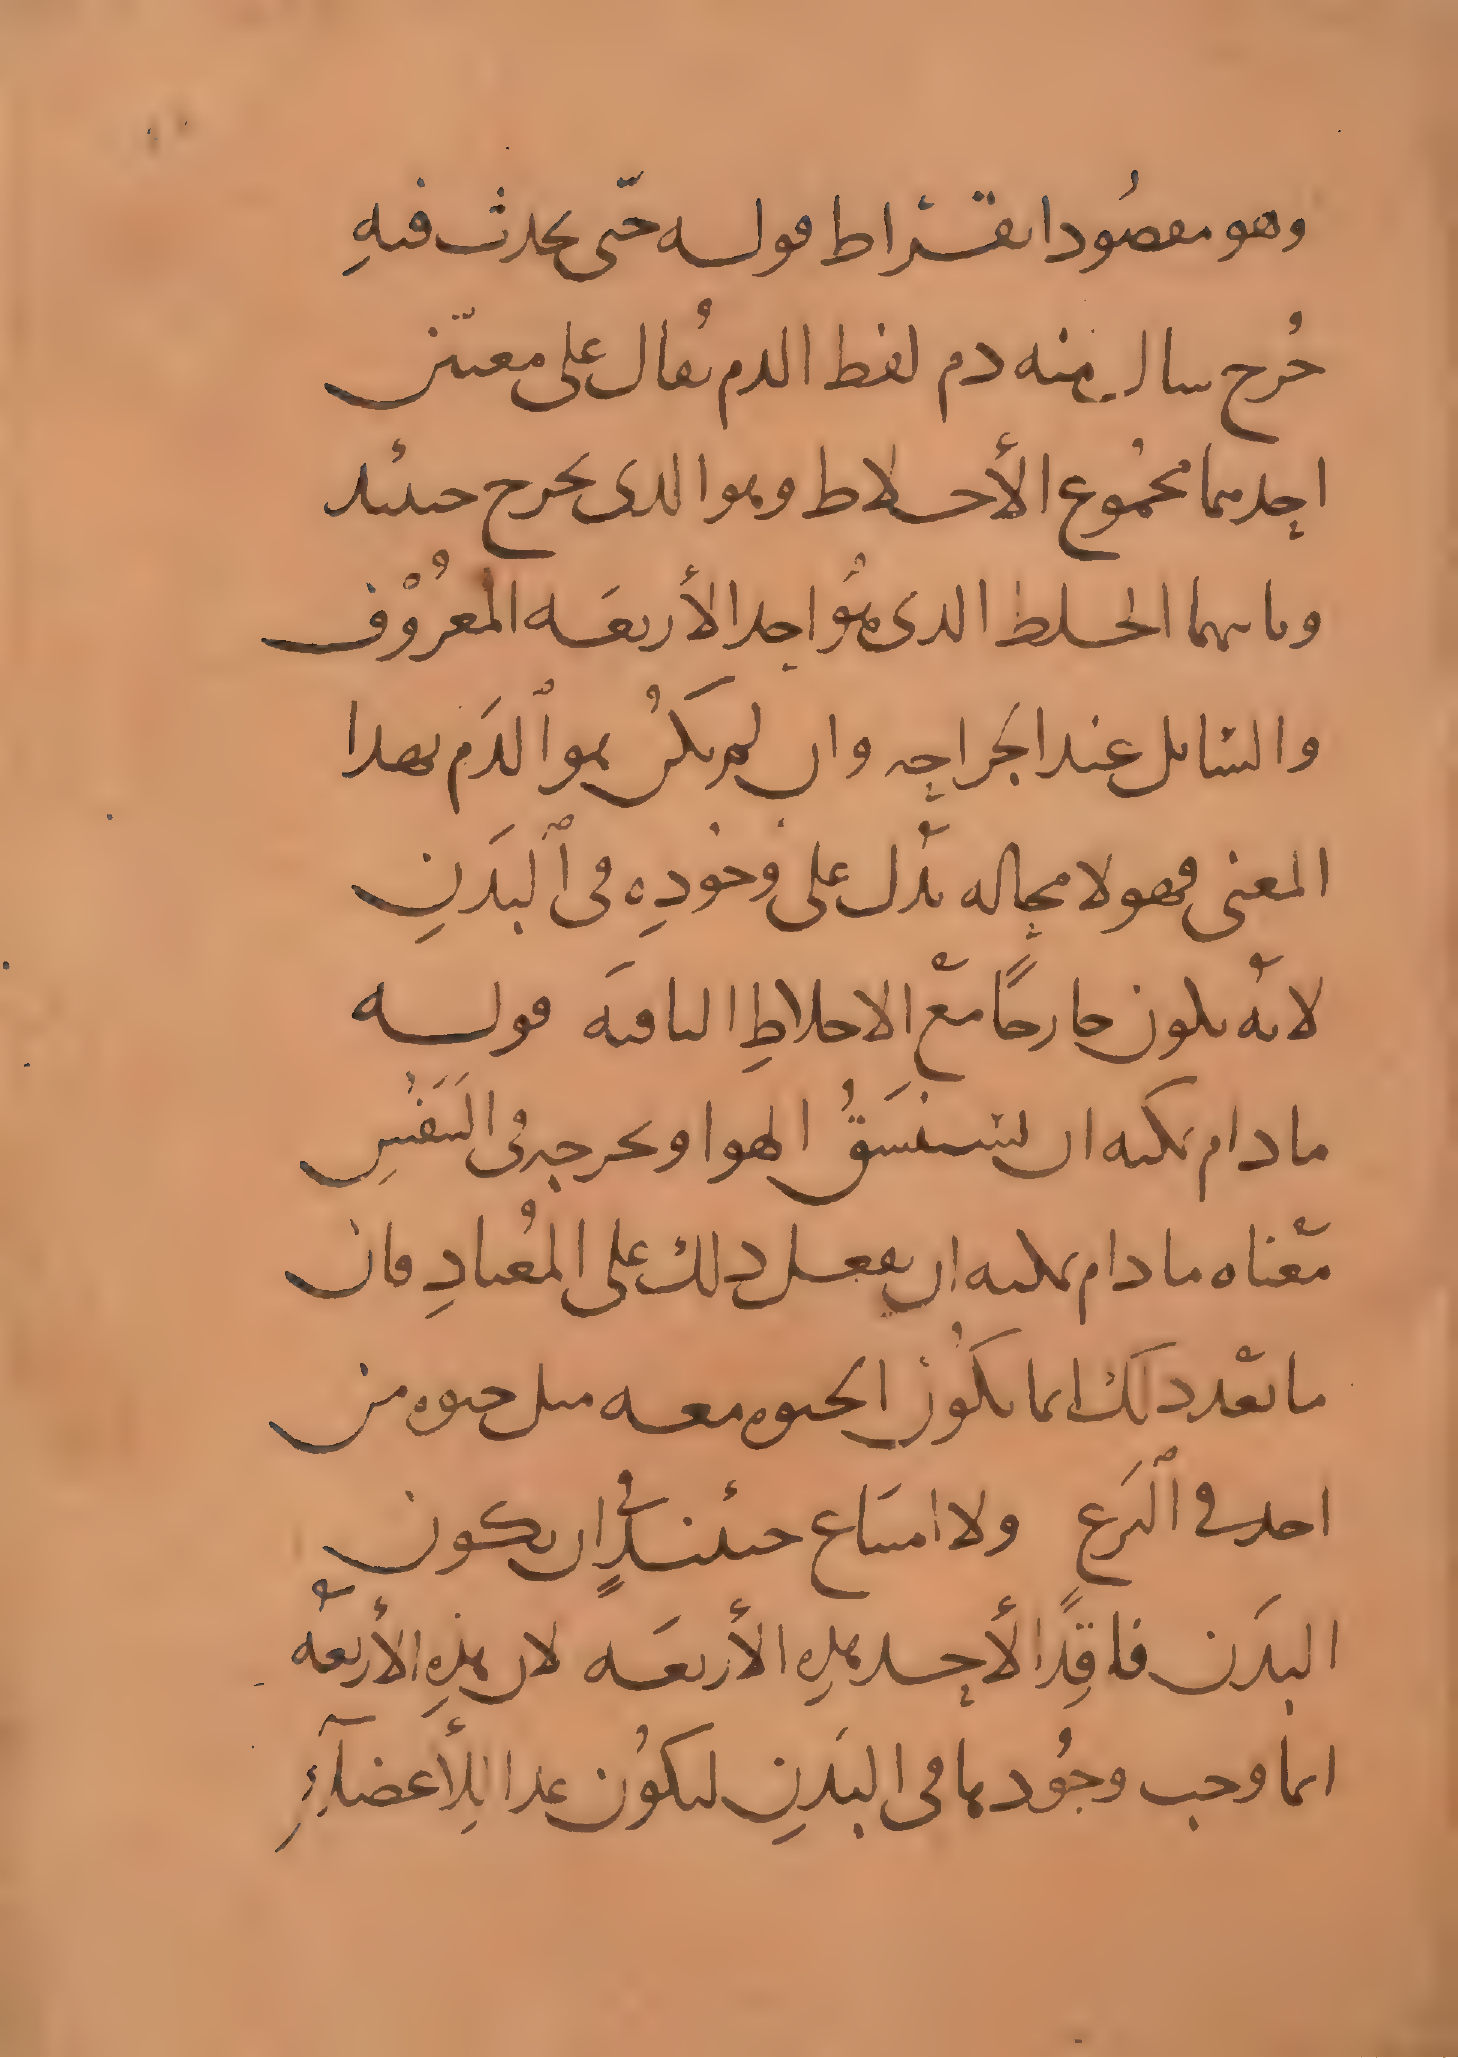 وهو مقصود ابقراط قوله حتى يحدث فيه
خرج سال منه دم لفظ الدم يقال على معنيين
احدهما مجموع الأخلاط وهو الذى يخرج حينئذ
وثانيهما الخلط الذى هو احد الأربعه المعروف
والسائل عند الجراحه وان لم يكن هو الدم بهذا
المعنى فهو لا محاله يدل على وجوده فى البدن
لانه يكون خارجًا مع الاخلاط الباقيه قوله
ما دام يمكنه ان يستنشق الهوا ويخرجه فى التنفس
معناه ما دام يمكنه ان يفعل ذلك على المعتاد فان
ما بعد ذلك انما يكون الحيوه معه مثل حيوه من
اخذ في النزع ولا امتناع حينئذٍ في ان يكون
البدن فاقدًا لأحد هذه الأربعه لان هذه الأربعه
انما وجب وجودها فى البدن ليكون غذا للأعضآءِ